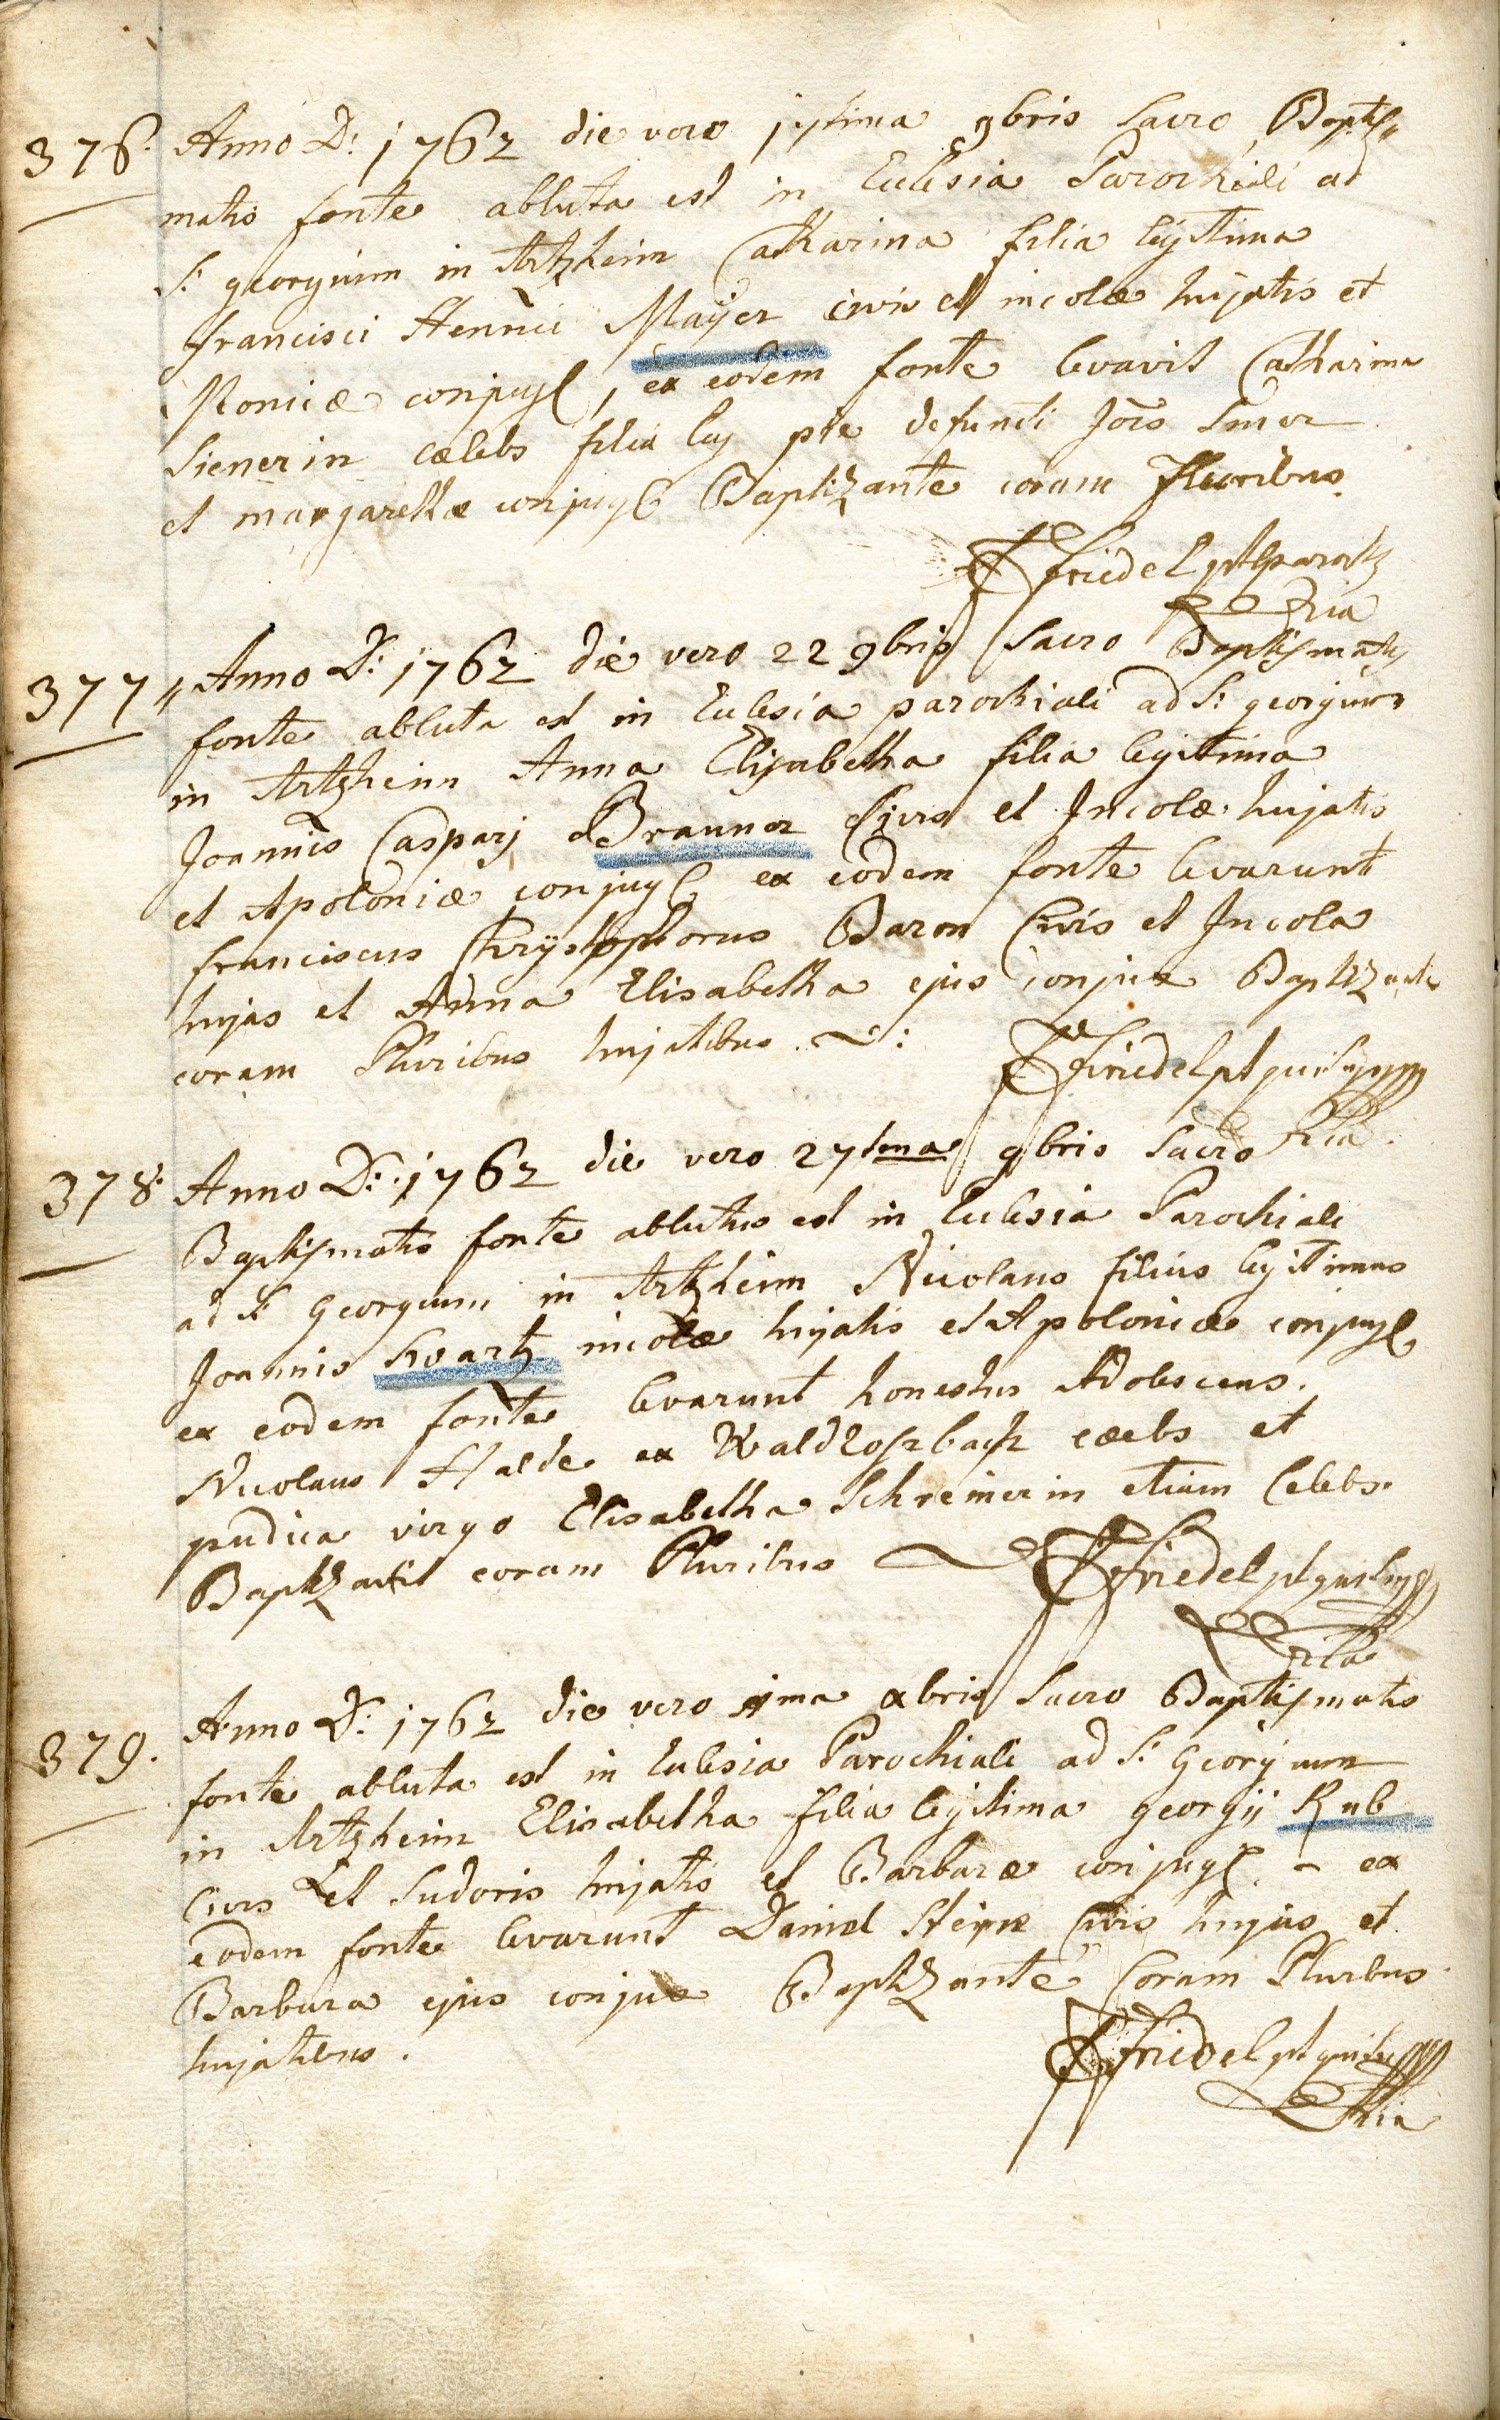 376. Anno D: 1762 die vero 17tima 9bris Sacro Baptis
matis fonte abluta est in Eclesia Parochiali ad
S: georgium in Artzheim Catharina filia legitima
francisci Henrici Mayer civis et incolae hujatis et
Monicae conjugis, ex eodem fonte levavit Catharina
Sienerin caelebs filia leg pie defuncti Jois Siner
et margarethae conjugis Baptizante coram Pluribus.
Friedel
ria
377 Anno D: 1762 die vero 22 9bris Sacro Baptismatis
fonte abluta est in Eclesia parochiali ad S: georgium
in Artzheim Anna Elisabetha filia legitima
Joannis Casparj Brauner Civis et Incolae hujatis
et Apoloniae conjugis ex eodem fonte levarunt
franciscus Chrystophorus Baron Civis et Incola
hujas et Anna Elisabetha ejus conjux Baptizante
coram Pluribus hujatibus.
Friedel
ria
378. Anno D: 1762 die vero 27tima 9bris Sacro
Baptismatis fonte ablutus est in Eclesia Parochiali
ad S: Georgium in Artzheim Nicolaus filius legitimus
Joannis Swartz incolae hujatis et Apoloniae conjugis
ex eodem fonte levarunt honestus Adolescens.
Nicolaus Halde ex caelebs et
pudica virgo Elisabetha Schreinerin etiam Celebs.
coram Pluribus
Friedel
ria
379. Anno D: 1762 die vero xbris Sacro Baptismatis
fonte abluta est in Eclesia Parochiali ad S: Georgium
in Artzheim Elisabetha filia legitima georgij Rub
Civis et Sudoris hujatis et Barbarae conjugis. - ex
eodem fonte levarunt Daniel Civis hujas et
Barbara ejus conjux Baptizante Coram Pluribus
hujatibus.
Friedel
ria